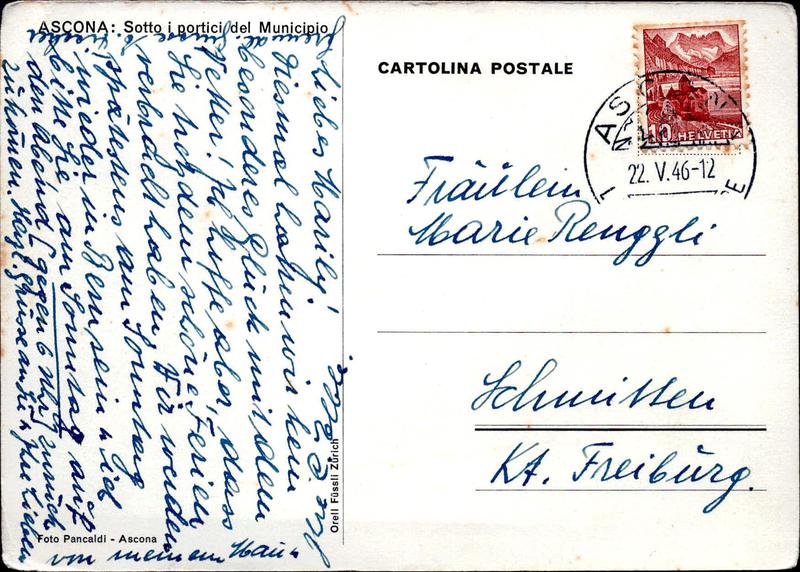 ASCONA: Sotto i portici del Municipio
CARTOLINA POSTALE
ASCONA
22. V. 46-12
10 HELVETIA
Fräulein
Marie Renggli
Schmitten
Kt. Freiburg.
Liebes Marily!
Diesmal haben wir kein
besonderes Glück mit dem
Wetter! Ich hoffe aber, dass
Sie trotzdem schöne Ferien
verbracht haben. Wir werden
spätestens am Sonntag
wieder in Bern sein u.
bitte Sie am Sonntag auf
den Abend (gegen 6 Uhr) zurück
zu kommen. Herzl. Grüsse an Sie u. Ihre Lieben
von meinem Mann
Orell Füssli Zürich
Foto Pancaldi - Ascona